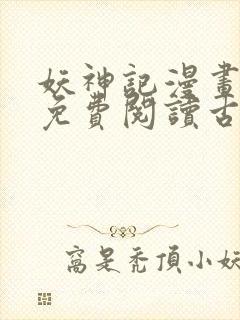 妖神記漫畫
免費閱讀古
窩是禿頂小妖